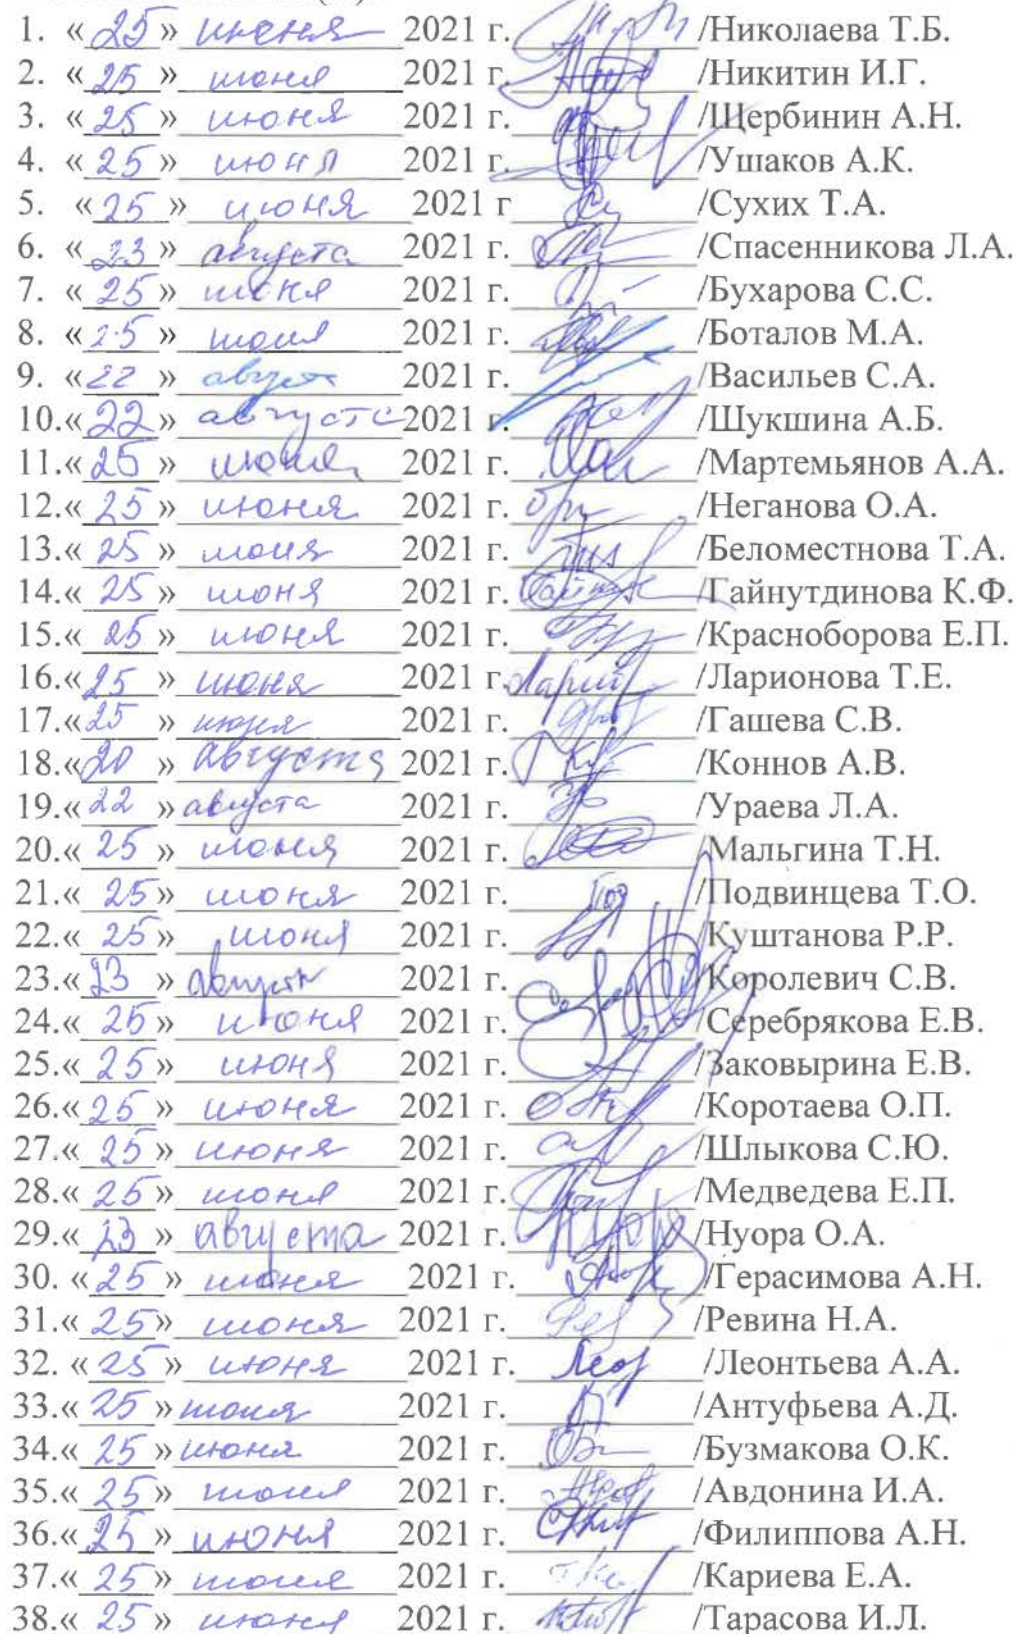 1. «25» июня 2021 г. /Николаева Т.Б.
2. «25» июня 2021 г. /Никитин И.Г.
3. «25» июня 2021 г. /Щербинин А.Н.
4. «25» июня 2021 г. /Ушаков А.К.
5. «25» июня 2021 г /Сухих Т.А.
6. «23» августа 2021 г. /Спасенникова Л.А.
7. «25» июня 2021 г. /Бухарова С.С.
8. «25» июня 2021 г. /Боталов М.А.
9. «22» август 2021 г. /Васильев С.А.
10.«22» августа 2021 г. /Шукшина А.Б.
11.«25» июня 2021 г. /Мартемьянов А.А.
12.«25» июня 2021 г. /Неганова О.А.
13.«25» июня 2021 г. /Беломестнова Т.А.
14.«25» июня 2021 г. /Гайнутдинова К.Ф.
15.«25» июня 2021 г. /Красноборова Е.П.
16.«25» июня 2021 г. /Ларионова Т.Е.
17.«25» июня 2021 г. /Гашева С.В.
18.«20» августа 2021 г. /Коннов А.В.
19.«22» августа 2021 г. /Ураева Л.А.
20.«25» июня 2021 г. /Мальгина Т.Н.
21.«25» июня 2021 г. /Подвинцева Т.О.
22.«25» июня 2021 г. /Куштанова Р.Р.
23.«23» августа 2021 г. /Королевич С.В.
24.«25» июня 2021 г. /Серебрякова Е.В.
25.«25» июня 2021 г. /Заковырина Е.В.
26.«25» июня 2021 г. /Коротаева О.П.
27.«25» июня 2021 г. /Шлыкова С.Ю.
28.«25» июня 2021 г. /Медведева Е.П.
29.«23» августа 2021 г. /Нуора О.А.
30. «25» июня 2021 г. /Герасимова А.Н.
31.«25» июня 2021 г. /Ревина Н.А.
32. «25» июня 2021 г. /Леонтьева А.А.
33.«25» июня 2021 г. /Антуфьева А.Д.
34.«25» июня 2021 г. /Бузмакова О.К.
35.«25» июня 2021 г. /Авдонина И.А.
36.«25» июня 2021 г. /Филиппова А.Н.
37.«25» июня 2021 г. /Кариева Е.А.
38.«25» июня 2021 г. /Тарасова И.Л.